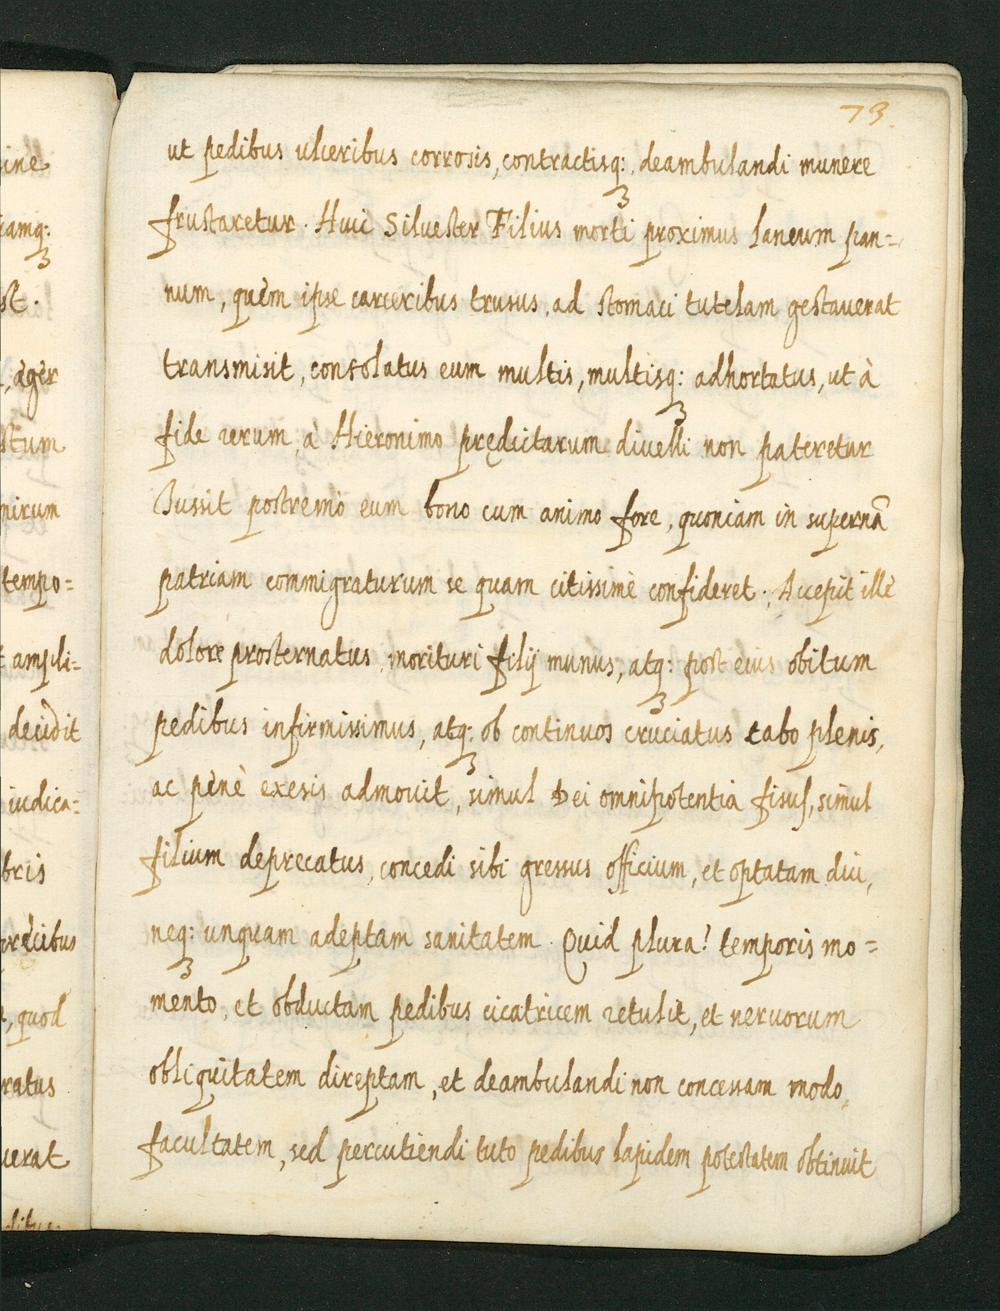 73.
ut pedibus ulceribus corrosis, contractisq:, deambulandi munere
frustaretur. Huic Siluester Filius morti proximus laneum pan=
num, quèm ipse carceribus trusus, ad stomaci tutelam gestauerat
transmisit, consolatus eum multis, multisq: adhortatus, ut à
fide rerum, à Hieronimo prędictarum diuelli non pateretur
Iussit postremò eum bono cum animo fore, quoniam in supernã
patriam commigraturum se quam citissimè confideret. Accepit illè
dolore prosternatus morituri filij munus, atq: post eius obitum
pedibus infirmissimus, atq: ob continuos cruciatus tabo plenis,
ac pènè exesis admouit, simul Dei omnipotentia fisus, simul
filium deprecatus, concedi sibi gressus officium, et optatam diu,
neq: unquam adeptam sanitatem. Quid plura? temporis mo=
mento, et obductam pedibus cicatricem retulit, et neruorum
obliquitatem direptam, et deambulandi non concessam modo,
facultatem, sed percutiendi tuto pedibus lapidem potestatem obtinuit
ine
iamq:
st.
, ager
stum
nirum
tempo=
ampli=
decidit
iudica=
bris
precibus
, quod
ratus
uerat